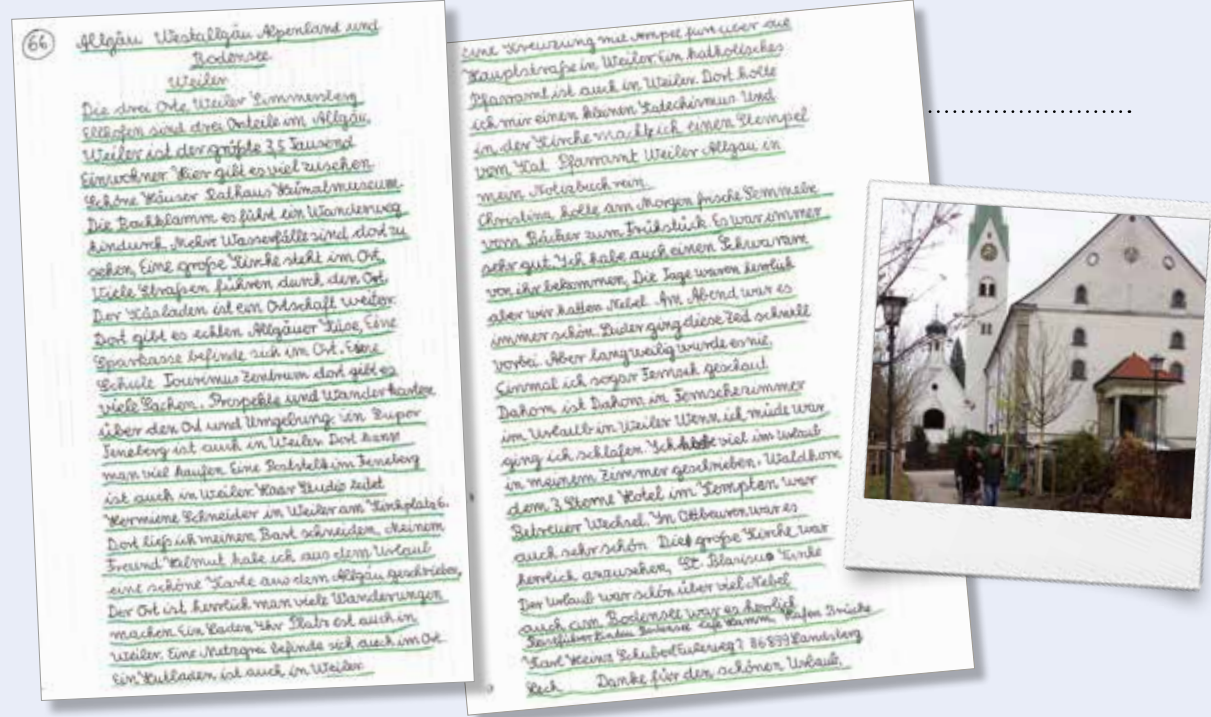 66
Allgäu Westallgäu Alpenland und
Bodensee
Weiler
Die drei Orte Weiler Simmerberg
Ellhofen sind drei Orteile im Allgäu,
Weiler ist der größte 3,5 Tausend
Einwohner Hier gibt es viel zusehen
Schöne Häuser Rathaus Heimatmuseum.
Die Bachklamm es führt ein Wanderweg
hindurch. Mehre Wasserfälle sind dort zu
sehen, Eine große Kirche steht im Ort,
Viele Straßen führen durch den Ort
Der Käsladen ist ein Ortschaft weiter.
Dort gibt es echten Allgäuer Käse, Eine
Sparkasse befinde sich im Ort. Eine
Schule Tourimus Zentrum dort gibt es
viele Sachen. Prospekte und Wander karten
über den Ort und Umgebung. ein Super
Feneberg ist auch in Weiler Dort kann
man viel kaufen Eine Poststelle im Feneberg
ist auch in Weiler Haar Studio leitet
Hermiene Schneider in Weiler am Kirchplatz 6.
Dort ließ ich meinen Bart schneiden, Meinem
Freund Helmut habe ich aus dem Urlaub
eine schöne Karte aus dem Allgäu geschrieben,
Der Ort ist herrlich man viele Wanderungen
machen Ein Laden Uhr Platz ist auch in
Weiler. Eine Metzgrei befinde sich auch im Ort
Ein Hutladen ist auch in Weiler
Eine Kreuzung mit Ampel fürt über die
Hauptstraße in Weiler. Ein katholisches
Pfarramt ist auch in Weiler. Dort holte
ich mir einen kleinen Katechismus Und
in der Kirche macht ich einen Stempel
vom Kat. Pfarramt Weiler Allgäu in
mein Notizbuch rein.
Christina holte am Morgen frische Semmeln
vom Bäcker zum Frühstück. Es war immer
sehr gut. Ich habe auch einen
von ihr bekommen, Die Tage waren herrlich
aber wir hatten Nebel. Am Abend war es
immer schön. Leider ging diese Zeit schnell
vorbei. Aber langweilig wurde es nie,
Einmal ich sogar Fernseh geschaut
Dahom ist Dahom in Fernseherzimmer
im Urlaub in Weiler Wenn ich müde war
ging ich schlafen. Ich habe viel im Urlaub
in meinem Zimmer geschrieben, Waldhorn
dem 3 Sterne Hotel im Kempten war
Betreuer Wechsel. In Ottbeuren war es
auch sehr schön. Die große Kirche war
herrlich anzusehen, St. Blasius Kirche
Der Urlaub war schön über viel Nebel
auch am Bodensee war es herrlich
Lindau Bodensee Cafe Hafen Brücke
Karl Heinz Schubert Eulerweg 7 86899 Landsberg
Lech Danke für den schönen Urlaub.